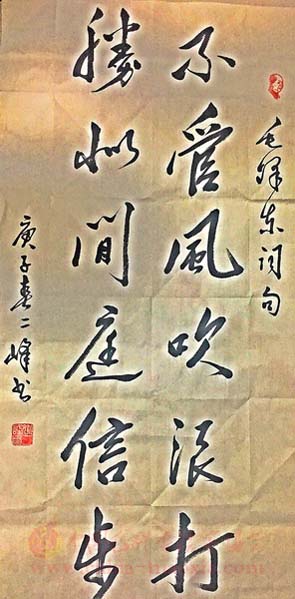 毛泽东词句
不管風吹浪打
勝似閒庭信步
庚子春二峰书